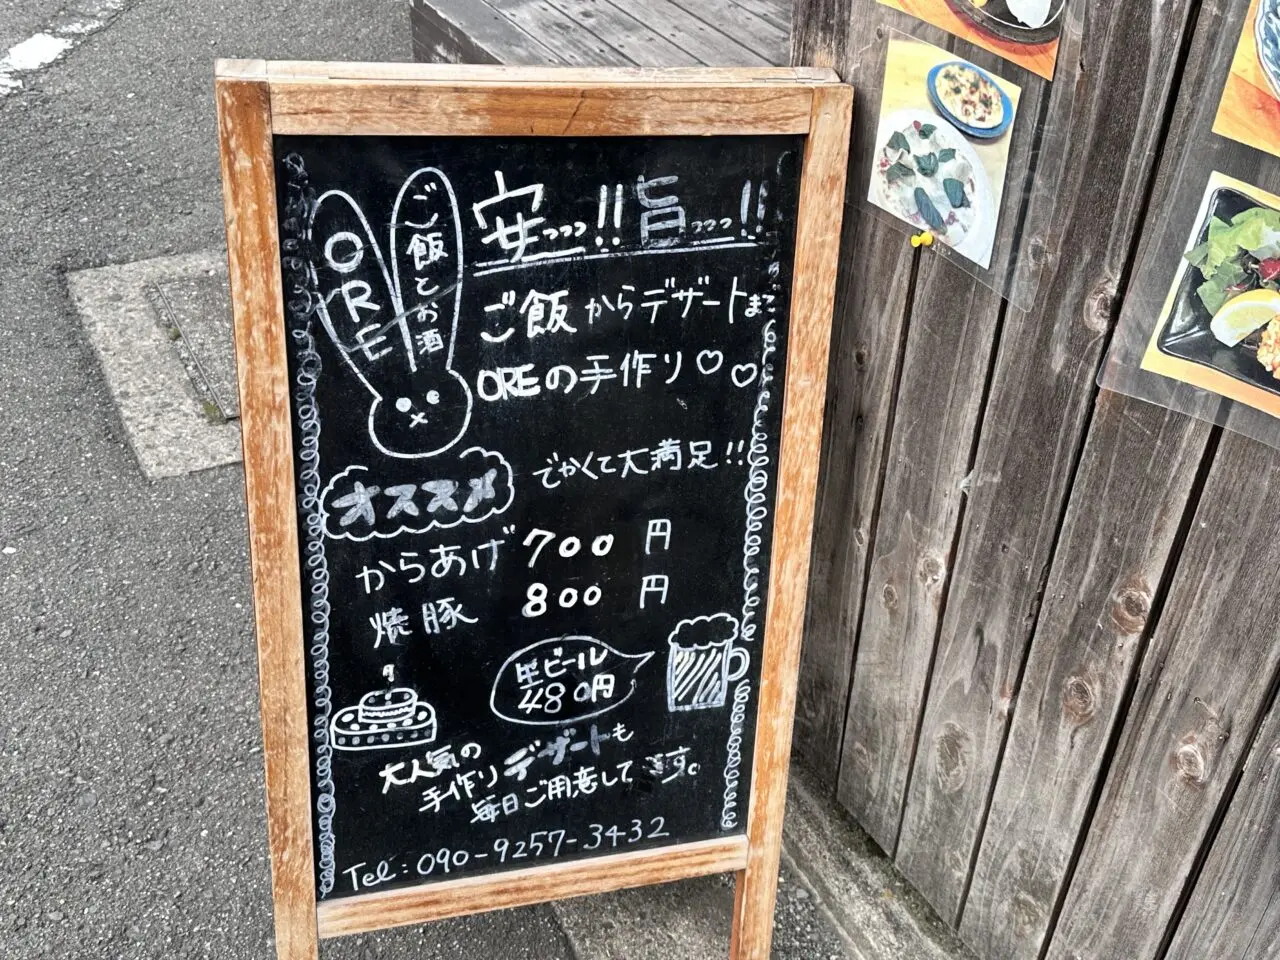 ORE
ご飯とお酒
安っっっ!! 旨っっっ!!
ご飯からデザートまで
OREの手作り♡♡
オススメ
でかくて大満足!!
からあげ 700円
焼豚 800円
生ビール
480円
大人気の
手作りデザートも
毎日ご用意してます。
Tel:090-9257-3432